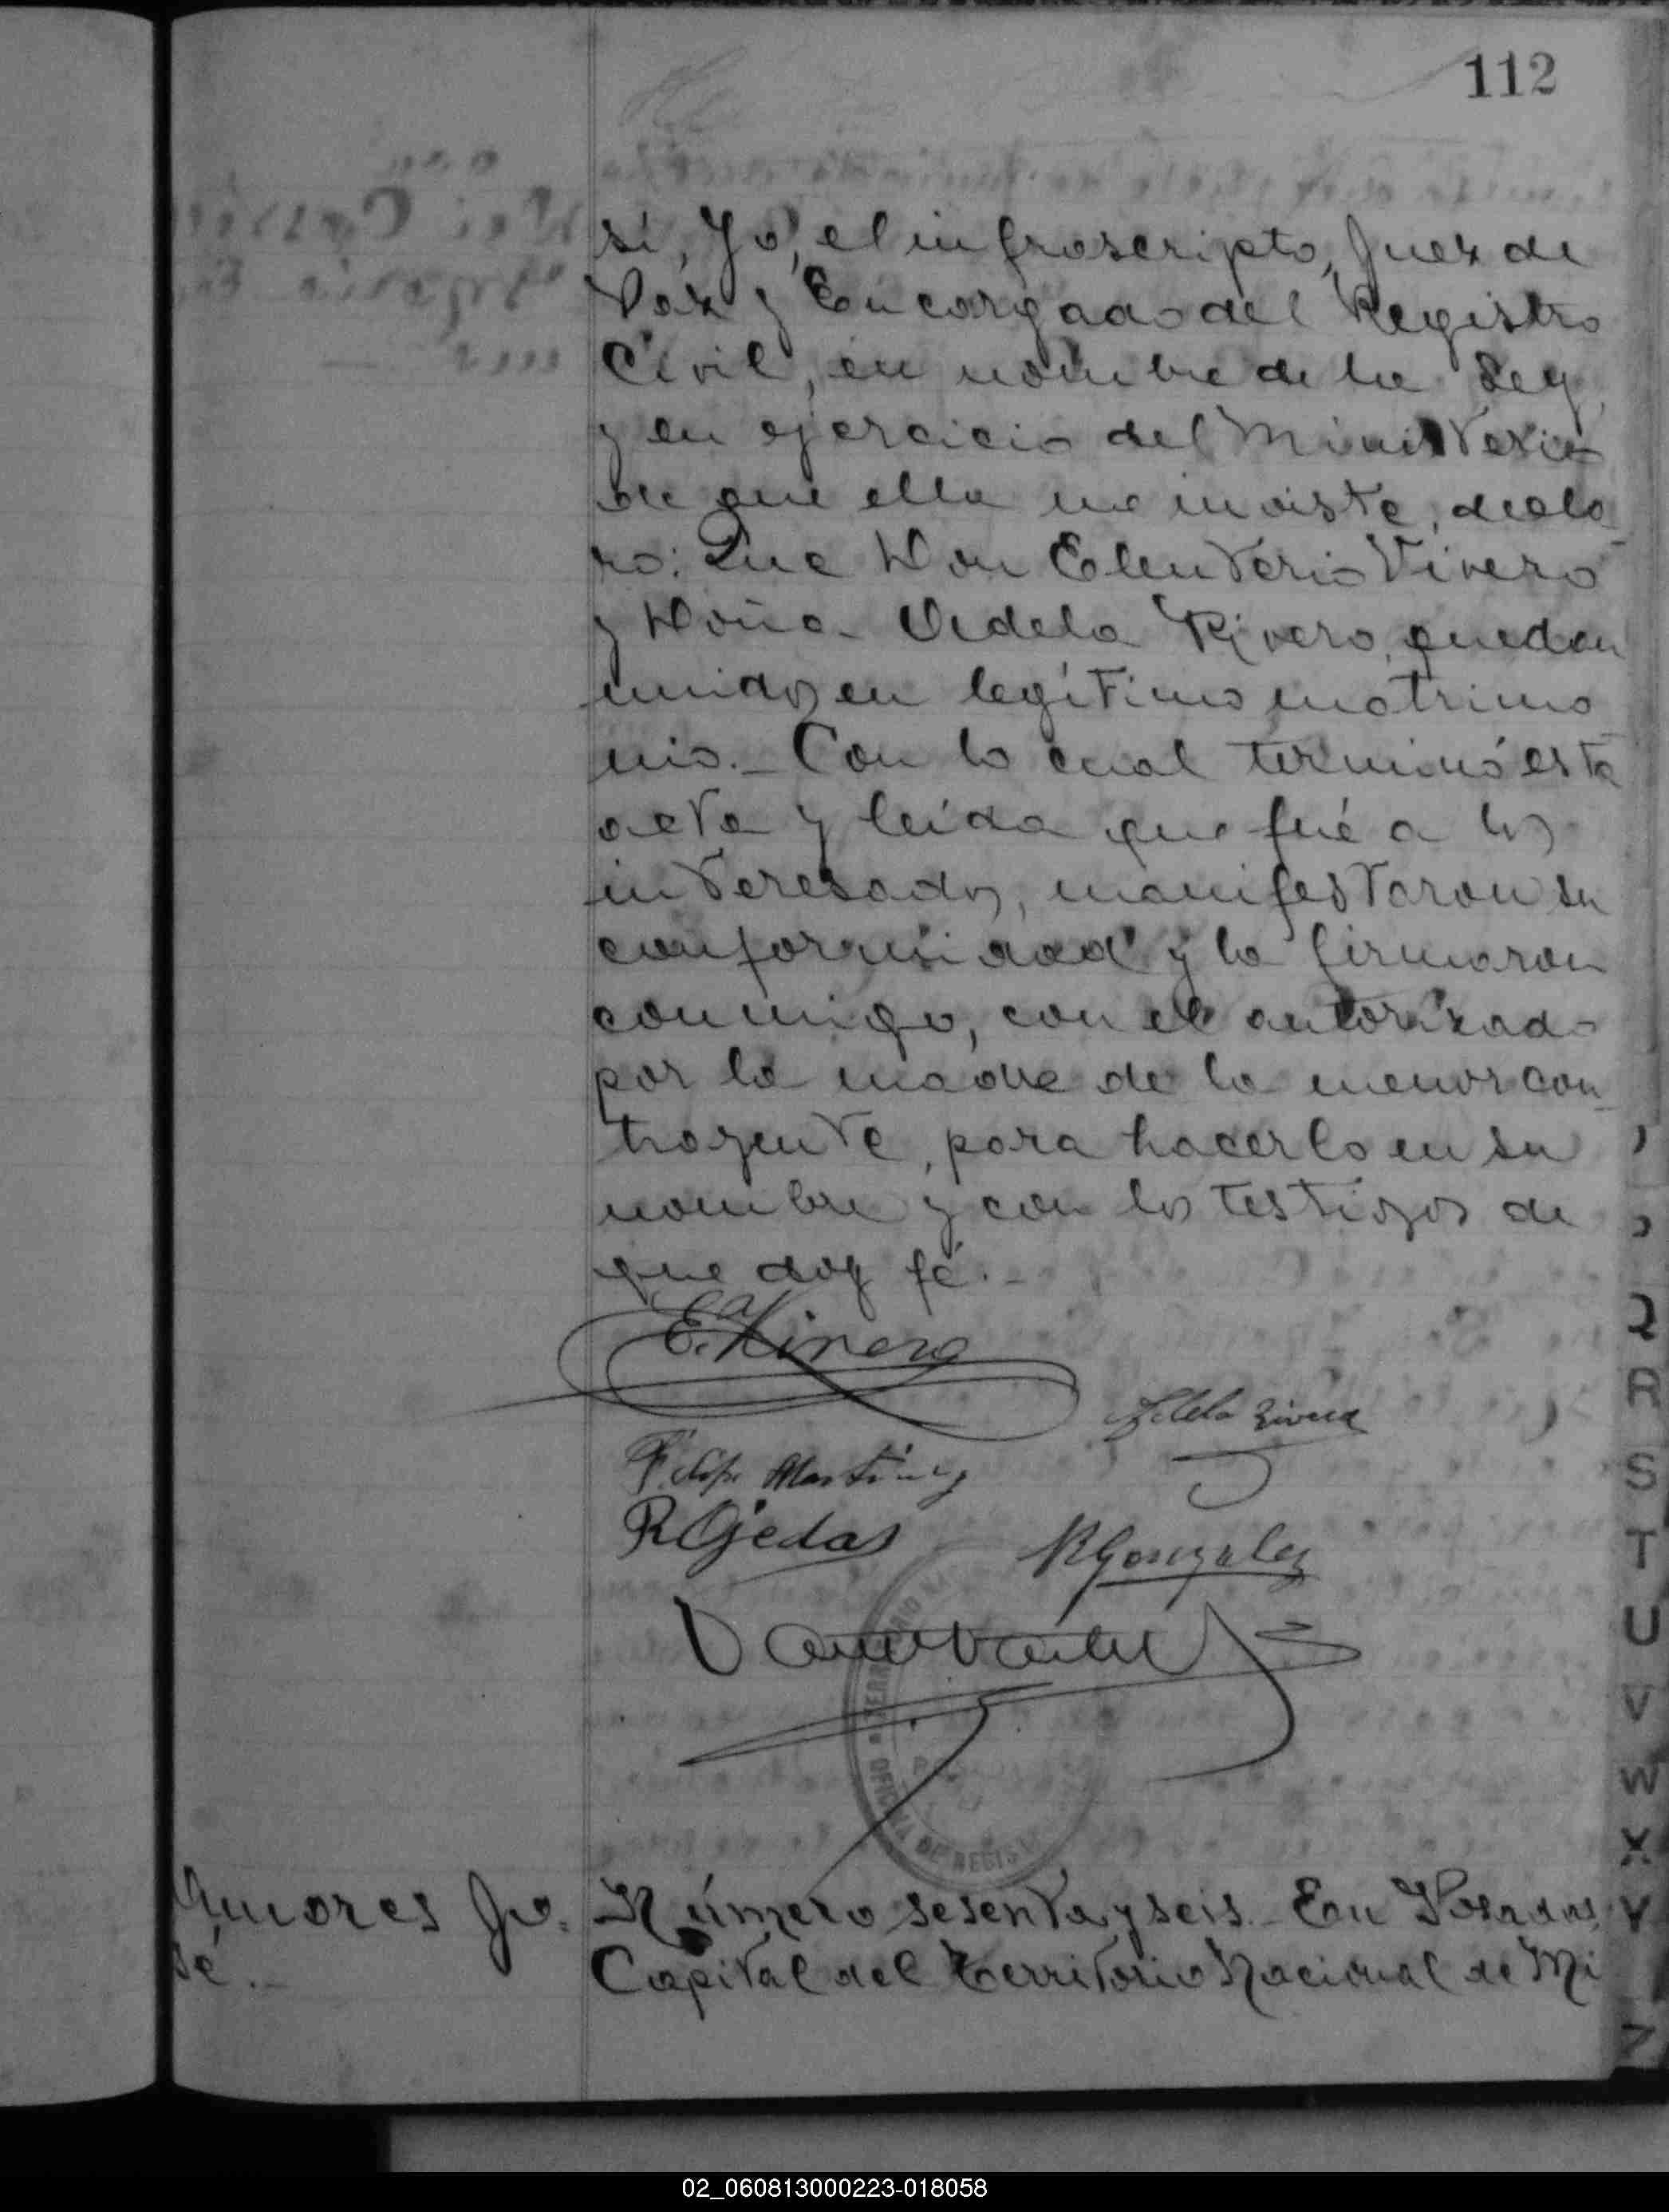 112
si, Yo, el infroscripto, Juez de
Paz y Encargado del Registro
Civil, en nombre de la Ley,
y en ejercicio del Ministerio
de que ella me inviste, decla
ro: Que Don Eleuterio Vivero
y Doña Fidela Rivero, quedan
unidos en legítimo matrimo
nio.- Con lo cual terminó esta
acta y leída que fué a los
interesados, manifestaron su
conformidad y la firmaron
conmigo, con el autorizado
por la madre de la menor con_
trayente, para hacerlo en su
nombre y con los testigos de
que doy fé.-
Fidela Rivera
Felipe Martinez
R Ojedas
R Gonzalez
TERR
OFICINA DE REGIS
Amores Jo.
sé.-
Número sesenta y seis.- En Posadas,
Capital del Territorio Nacional de Mi
Q
R
S
T
U
V
W
X
Y
Z
02_060813000223-018058